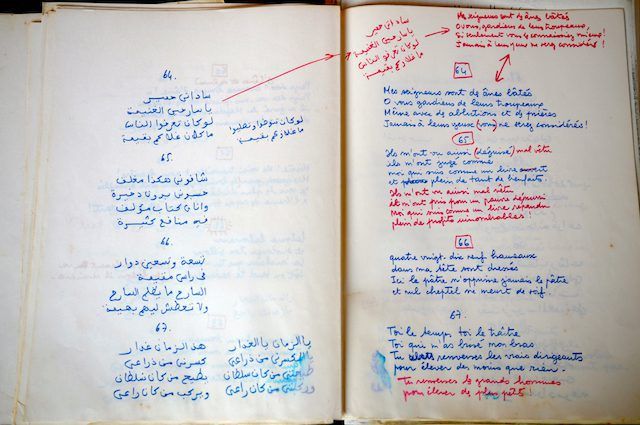 64.
ساداتي حمير
يا سارحين الغنيمة
لو كان تعرفوا الناس
ما كان غلاكم بقيمة
لو كان تتوضاوا وتصليوا
ما غلاكم بقيمة
65.
شافوني هكذا مغلف
حسبوني
وانا كتاب مؤلف
فيه منافع كثيرة
66.
تسعة وتسعين دوار
في راسي مقيمة
السارح ما يظلم السارح
ولا تعطش ليهم بهيمة
67.
هذ الزمان غدار
كسرني من ذراعي
يطيح من كان سلطان
ويركب من كان راعي
يا الزمان يا الغدار
يا الكسرني من ذراعي
طيحتي من كان سلطان
وركبتي من كان راعي
ساداتي حمير
يا سارحين الغنيمة
لو كان تعرفوا الناس
ما غلاكم بقيمة
Mes seigneurs sont d'ânes bâtés
O vous, gardiens de leurs troupeaux,
Si seulement vous les connaissiez mieux!
Jamais à leurs yeux ne serez considérés!
64
Mes seigneurs sont de ânes bâtés
O vous gardiens de leurs troupeaux
Même avec des ablutions et des prières
Jamais à leurs yeux (vous) ne serez considérés!
65
Ils m'ont vu aussi (déguisé) mal vêtu
ils m'ont jugé comme
moi qui suis comme un livre ouvert
et plein de tant de bienfaits.
Ils m'ont vu ainsi mal vêtu
et m'ont pris pour un pauvre démuni
Moi qui suis comme un livre répandu
plein de profits innombrables!
66
quatre vingt. dix neuf hameaux
dans ma tête sont dressés
Ici le pâtre n'opprime jamais le pâtre
et nul cheptel ne meurt de soif.
67.
Toi le temps toi le traître
Toi qui m'as brisé mon bras
Tu renverses les vrais dirigeants
pour élever des moins que rien.
Tu renverses de grands hommes
pour élever de plus petits